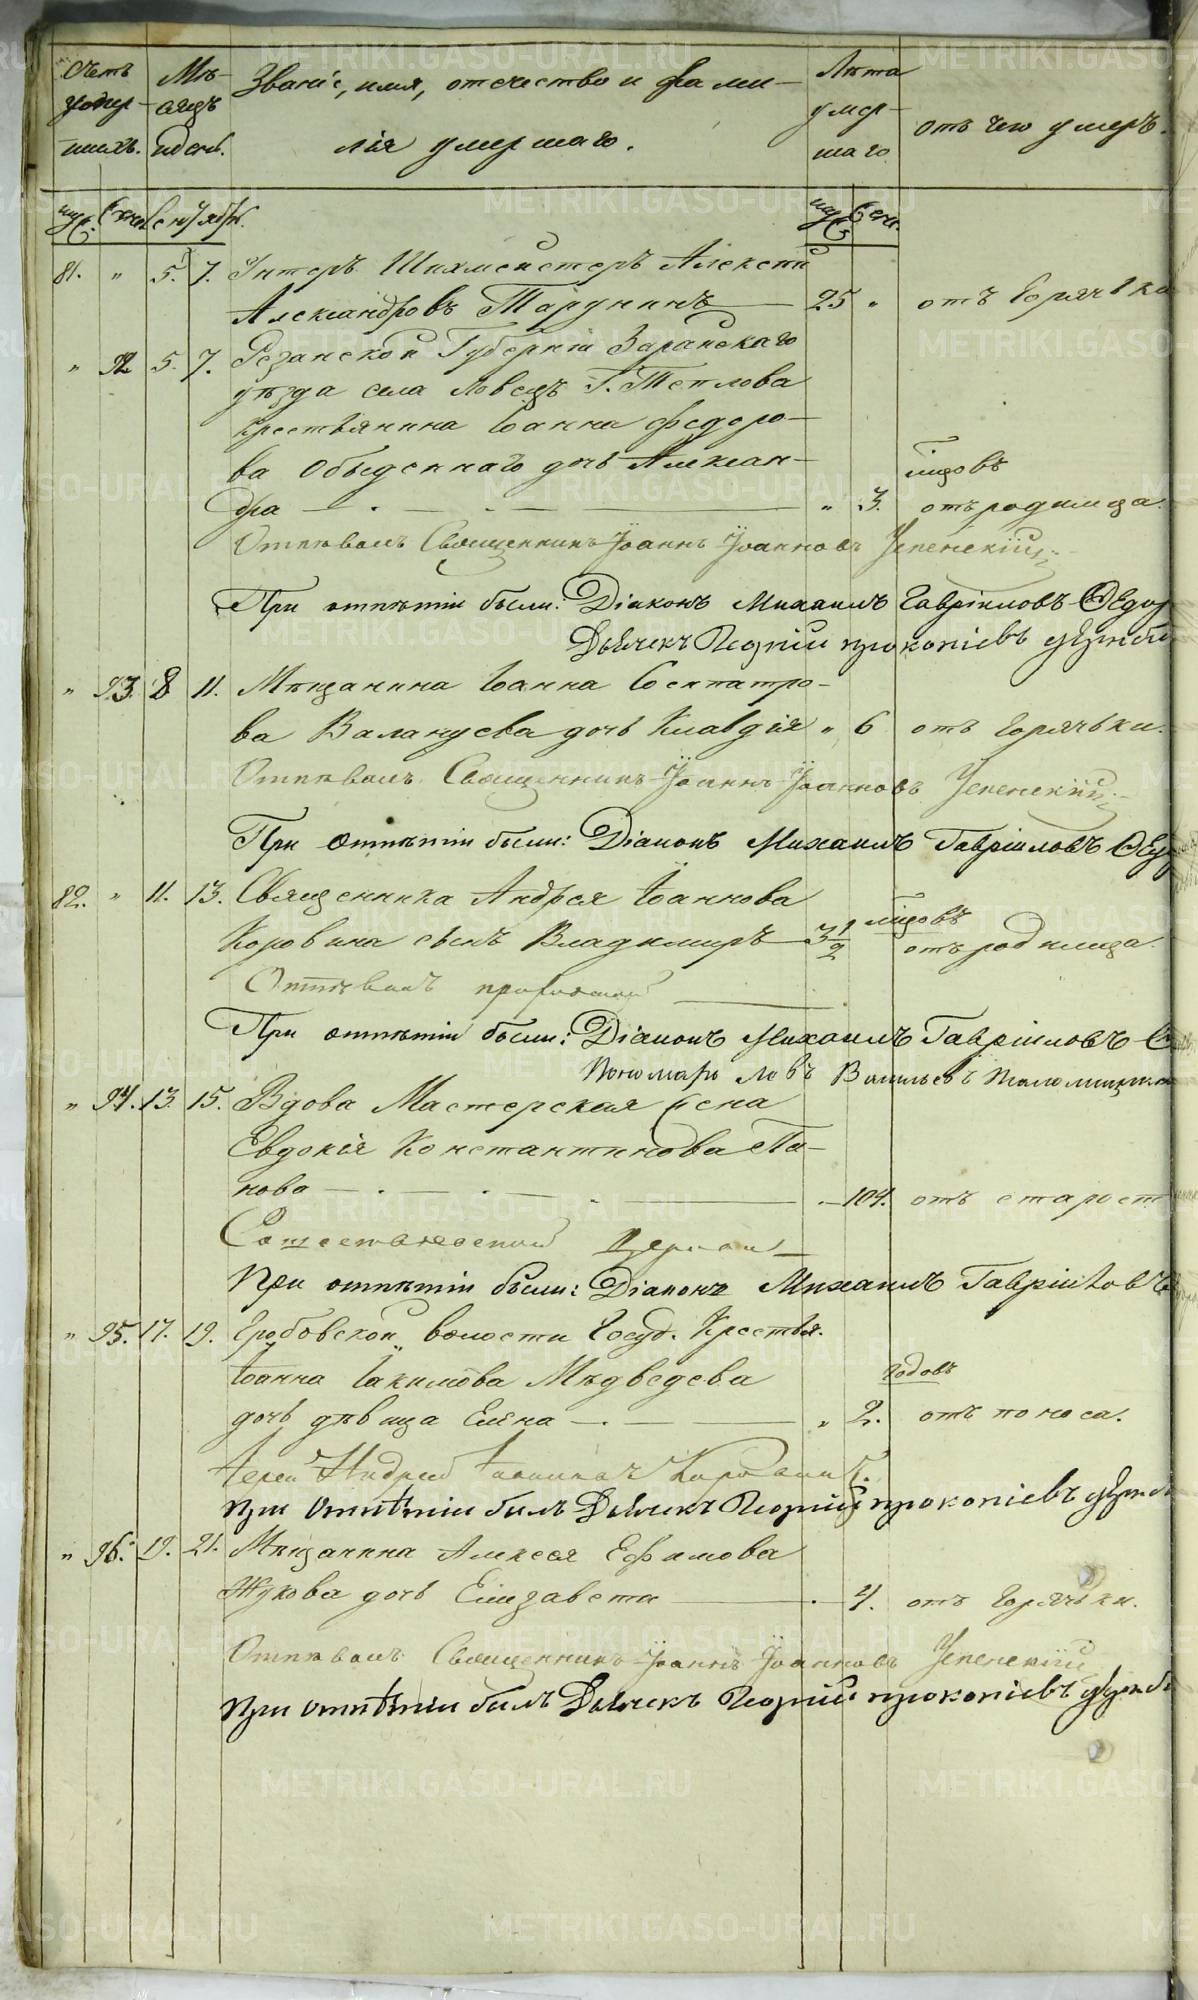 Счетъ умер- шихъ.
Мѣ- сяцъ и день.
Званіе, имя, отчество и фами-
лія умершаго.
Лѣта умер- шаго
отъ чего умеръ.
муж. жен. Сентябрь. муж. жен.
81. " 5. 7. Унтеръ Шихмейстеръ Алексѣй
Александровъ Тарунинъ 25 " отъ Горячки
" 92 5. 7. Резанской Губерніи Зарайскаго
уѣзда села Ловецъ Г. Теплова
крестьянина Іоанна Федоро-
ва Обыденнаго дочь Алексан-
дра " 3. мѣсяцовъ отъ родимца.
Отпѣвалъ Священникъ Іоаннъ Іоанновъ Успенскій
При отпѣтіи были: Діаконъ Михаилъ Гавріиловъ Ѳедор
Дьячекъ Георгій Прокопіевъ
" 93. 8 11. Мѣщанина Іоанна Сосипатро-
ва Валануева дочь Клавдія " 6 отъ Горячьки.
Отпѣвалъ Священникъ Іоаннъ Іоанновъ Успенскій
При отпѣтіи были: Діаконъ Михаилъ Гавріиловъ Ѳед
82. " 11. 13. Священника Андрея Іоаннова
Коровина сынъ Владимиръ 3 1/2 мѣсяцовъ отъ родимца.
Отпѣвалъ
При отпѣтіи были: Діаконъ Михаилъ Гавріиловъ Ѳ
Пономарь Левъ Васильевъ
" 94. 13. 15. Вдова Мастерская жена
Евдокія Константинова Па-
нова 104. отъ старост
Сошественской Церкви
При отпѣтіи были: Діаконъ Михаилъ Гавріиловъ
" 95. 17. 19. Гробовской волости Госуд. Крестья.
Іоанна Іакимова Мѣдведева
дочь дѣвица Елена " 2. годовъ отъ поноса.
Іерей Андрей Іоанновъ Коровинъ.
При отпѣтіи былъ Дьячекъ Георгій Прокопіевъ
" 96. 19. 21. Мѣщанина Алексея Ефимова
Жукова дочь Елизавета 4. отъ Горячьки.
Отпѣвалъ Священникъ Іоаннъ Іоанновъ Успенскій
При отпѣтіи былъ Дьячекъ Георгій Прокопіевъ
METRIKI.GASO-URAL.RU